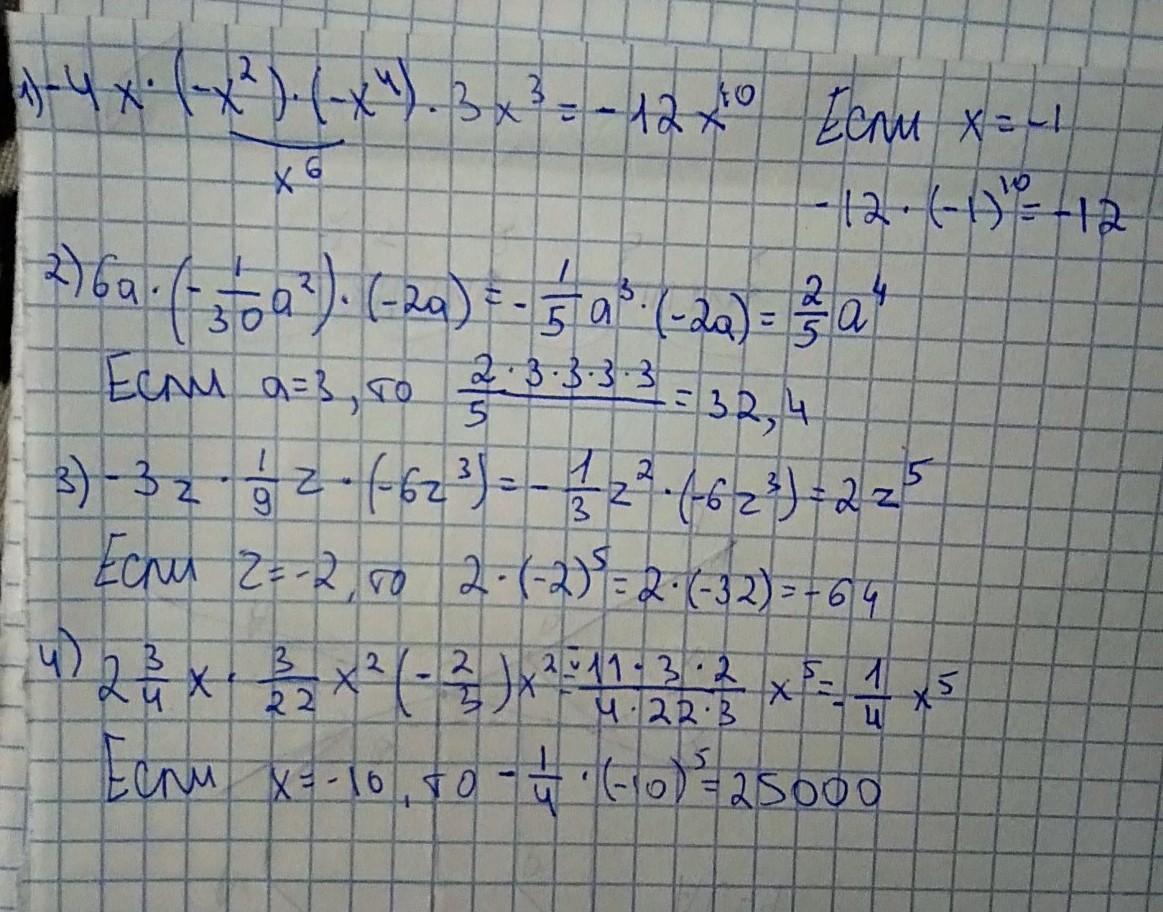 1) -4x · (-x²) · (-x⁴) · 3x³ = -12x¹⁰ Если x = -1
x⁶
-12 · (-1)¹⁰ = -12
2) 6a · (-1/30 a²) · (-2a) = -1/5 a³ · (-2a) = 2/5 a⁴
Если a=3, то 2·3·3·3·3/5 = 32,4
3) -3z · 1/9 z · (-6z³) = -1/3 z² · (-6z³) = 2z⁵
Если z=-2, то 2·(-2)⁵ = 2·(-32) = -64
4) 2 3/4 x · 3/22 x² (-2/3) x² = -11·3·2/4·22·3 x⁵ = -1/4 x⁵
Если x=-10, то -1/4 · (-10)⁵ = 25000